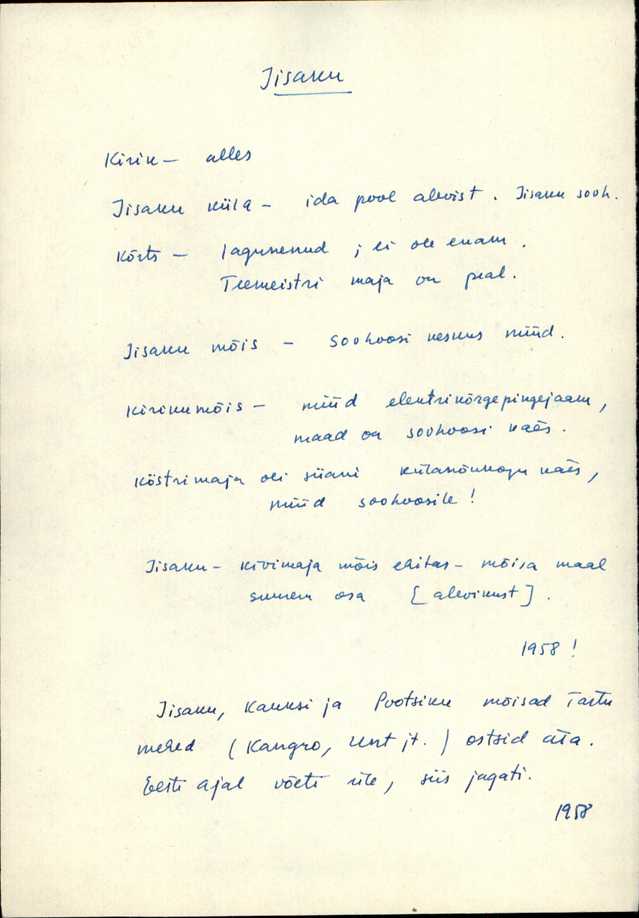 Iisaku
Kirik – alles
Iisaku küla – ida pool alevist. Iisaku sovh.
Kõrts – lagunenud ; ei ole enam.
Teemeistri maja on peal.
Iisaku mõis – sovhoosi keskus nüüd.
Kirikumõis – nüüd elektrikõrgepingejaam,
maad on sovhoosi käes.
Köstrimaja oli siiani külanõukogu käes,
nüüd sovhoosile!
Iisaku – kivimaja mõis ehitas – mõisa maal
suurem osa [alevikust].
1958!
Iisaku, Kauksi ja Pootsiku mõisad Tartu
mehed (Kangro, Unt jt.) ostsid ära.
Eesti ajal võeti üle, siis jagati.
1958